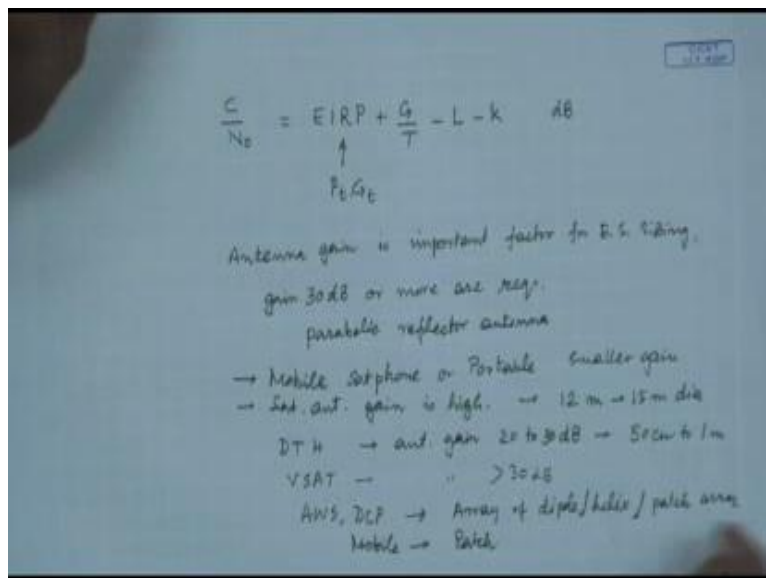 C/N₀ = EIRP + G/T - L - k dB
↑
PₜGₜ
Antenna gain is important factor for E.S. Sizing.
gain 30 dB or more are req.
parabolic reflector antenna
→ Mobile Satphone or Portable smaller gain
→ Sat. ant. gain is high. → 12 m → 15 m dia
DTH → ant. gain 20 to 30 dB → 50 cm to 1 m
VSAT → " >30 dB
AWS, DCP → Array of dipole/helix/patch array
Mobile → Patch